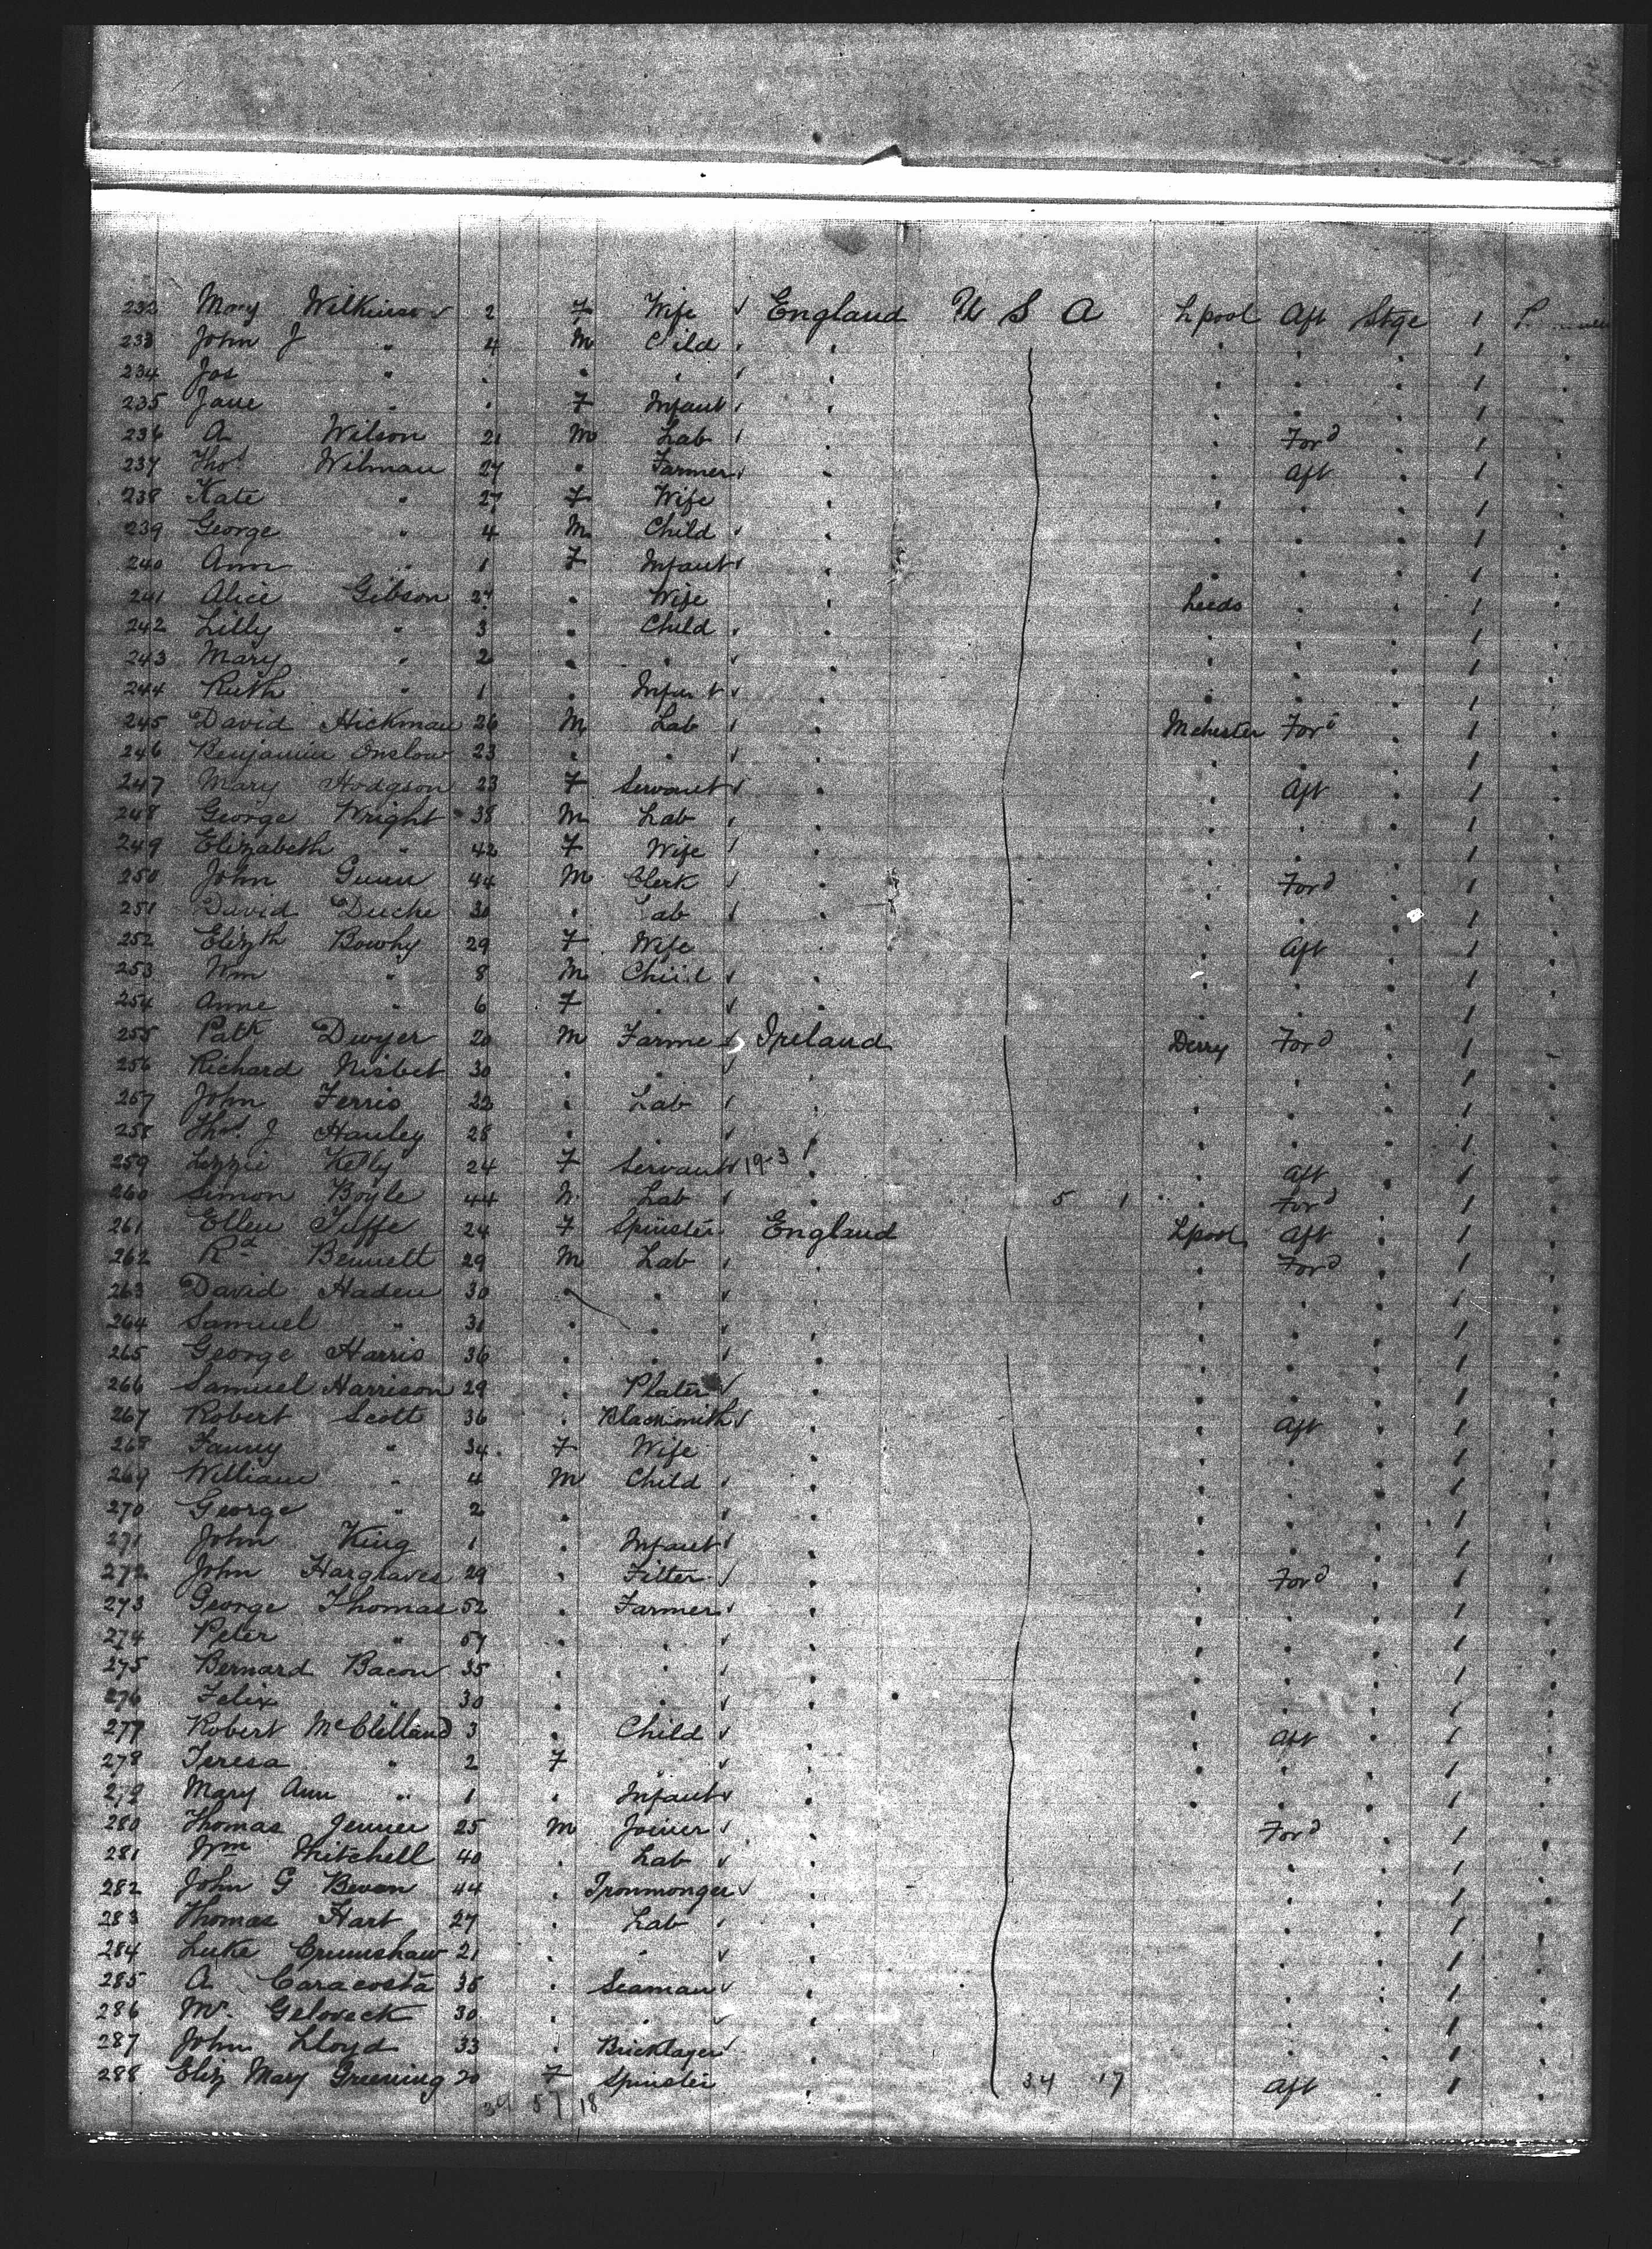 232 Mary Wilkinson 2 F Wife England U S A Lpool Aft Stge 1
233 John J " 4 M Cild 1
234 Jas " 1
235 Jane " F Infant 1
236 A Wilson 21 M Lab For'd 1
237 Thos Wilman 27 " Farmer Aft 1
238 Kate " 27 F Wife 1
239 George " 4 M Child 1
240 Ann " 1 F Infant 1
241 Alice Gibson 27 " Wife Leeds 1
242 Lilly " 3 " Child 1
243 Mary " 2 " " 1
244 Ruth " 1 " Infant 1
245 David Hickman 26 M Lab Mchester For'd 1
246 Benjamin Onslow 23 " " 1
247 Mary Hodgson 23 F Servant Aft 1
248 George Wright 38 M Lab 1
249 Elizabeth " 42 F Wife 1
250 John Gunn 44 M Clerk For'd 1
251 David Duche 30 " Lab 1
252 Elizth Bowhy 29 F Wife Aft 1
253 Wm " 8 M Child 1
254 Anne " 6 F " 1
255 Patk Dwyer 20 M Farmer Ireland Derry For'd 1
256 Richard Nisbet 30 " " 1
257 John Ferris 22 " Lab 1
258 Thos J Hanley 28 " " 1
259 Lizzie Kelly 24 F Servant 19-3 Aft 1
260 Simon Boyle 44 M Lab 5 1 For'd 1
261 Ellen Tuffe 24 F Spinster England Lpool Aft 1
262 Rd Bennett 29 M Lab For'd 1
263 David Haden 30 " " 1
264 Samuel " 31 " " 1
265 George Harris 36 " " 1
266 Samuel Harrison 29 " Plater 1
267 Robert Scott 36 " Blacksmith Aft 1
268 Fanny " 34 F Wife 1
269 William " 4 M Child 1
270 George " 2 " " 1
271 John King 1 " Infant 1
272 John Hargraves 29 " Fitter For'd 1
273 George Thomas 52 " Farmer 1
274 Peter " 57 " " 1
275 Bernard Bacon 35 " " 1
276 Felix " 30 " " 1
277 Robert McClelland 3 " Child Aft 1
278 Teresa " 2 F " 1
279 Mary Ann " 1 " Infant 1
280 Thomas Jenner 25 M Joiner For'd 1
281 Wm Mitchell 40 " Lab 1
282 John G Bevan 44 " Ironmonger 1
283 Thomas Hart 27 " Lab 1
284 Luke Crumshaw 21 " " 1
285 A Caracosta 35 " Seaman 1
286 Mr. Geloveck 30 " " 1
287 John Lloyd 33 " Bricklayer 1
288 Eliz Mary Greening 20 F Spinster 34 17 Aft 1
39 57 18